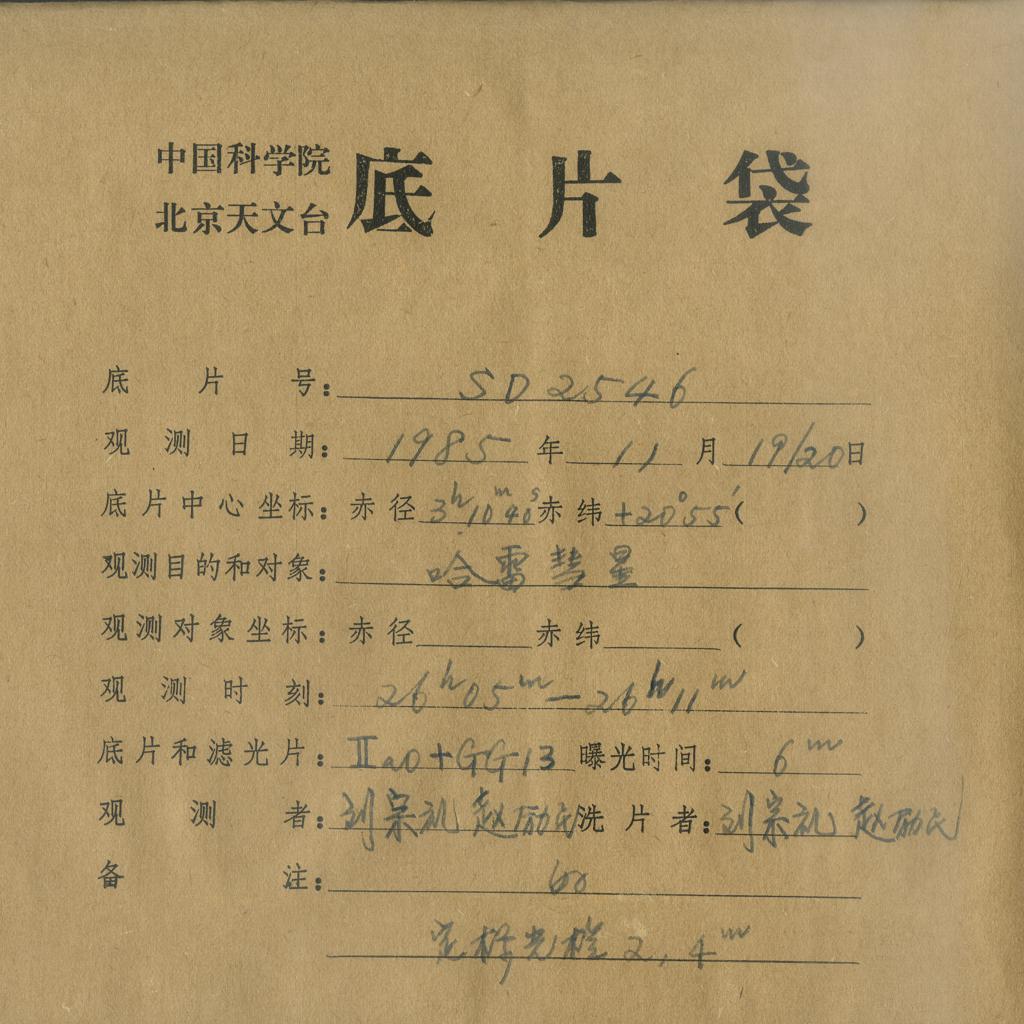 中国科学院
北京天文台 底片袋
底片号: SD2546
观测日期: 1985年11月19/20日
底片中心坐标: 赤径3ʰ10ᵐ40ˢ赤纬+20°55′( )
观测目的和对象: 哈雷彗星
观测对象坐标: 赤径 赤纬 ( )
观测时刻: 26ʰ05ᵐ—26ʰ11ᵐ
底片和滤光片: ⅡaO+GG13 曝光时间: 6ᵐ
观测者: 刘宗礼 赵励民 洗片者: 刘宗礼 赵励民
备注:
定标光楔 2, 4ᵐ